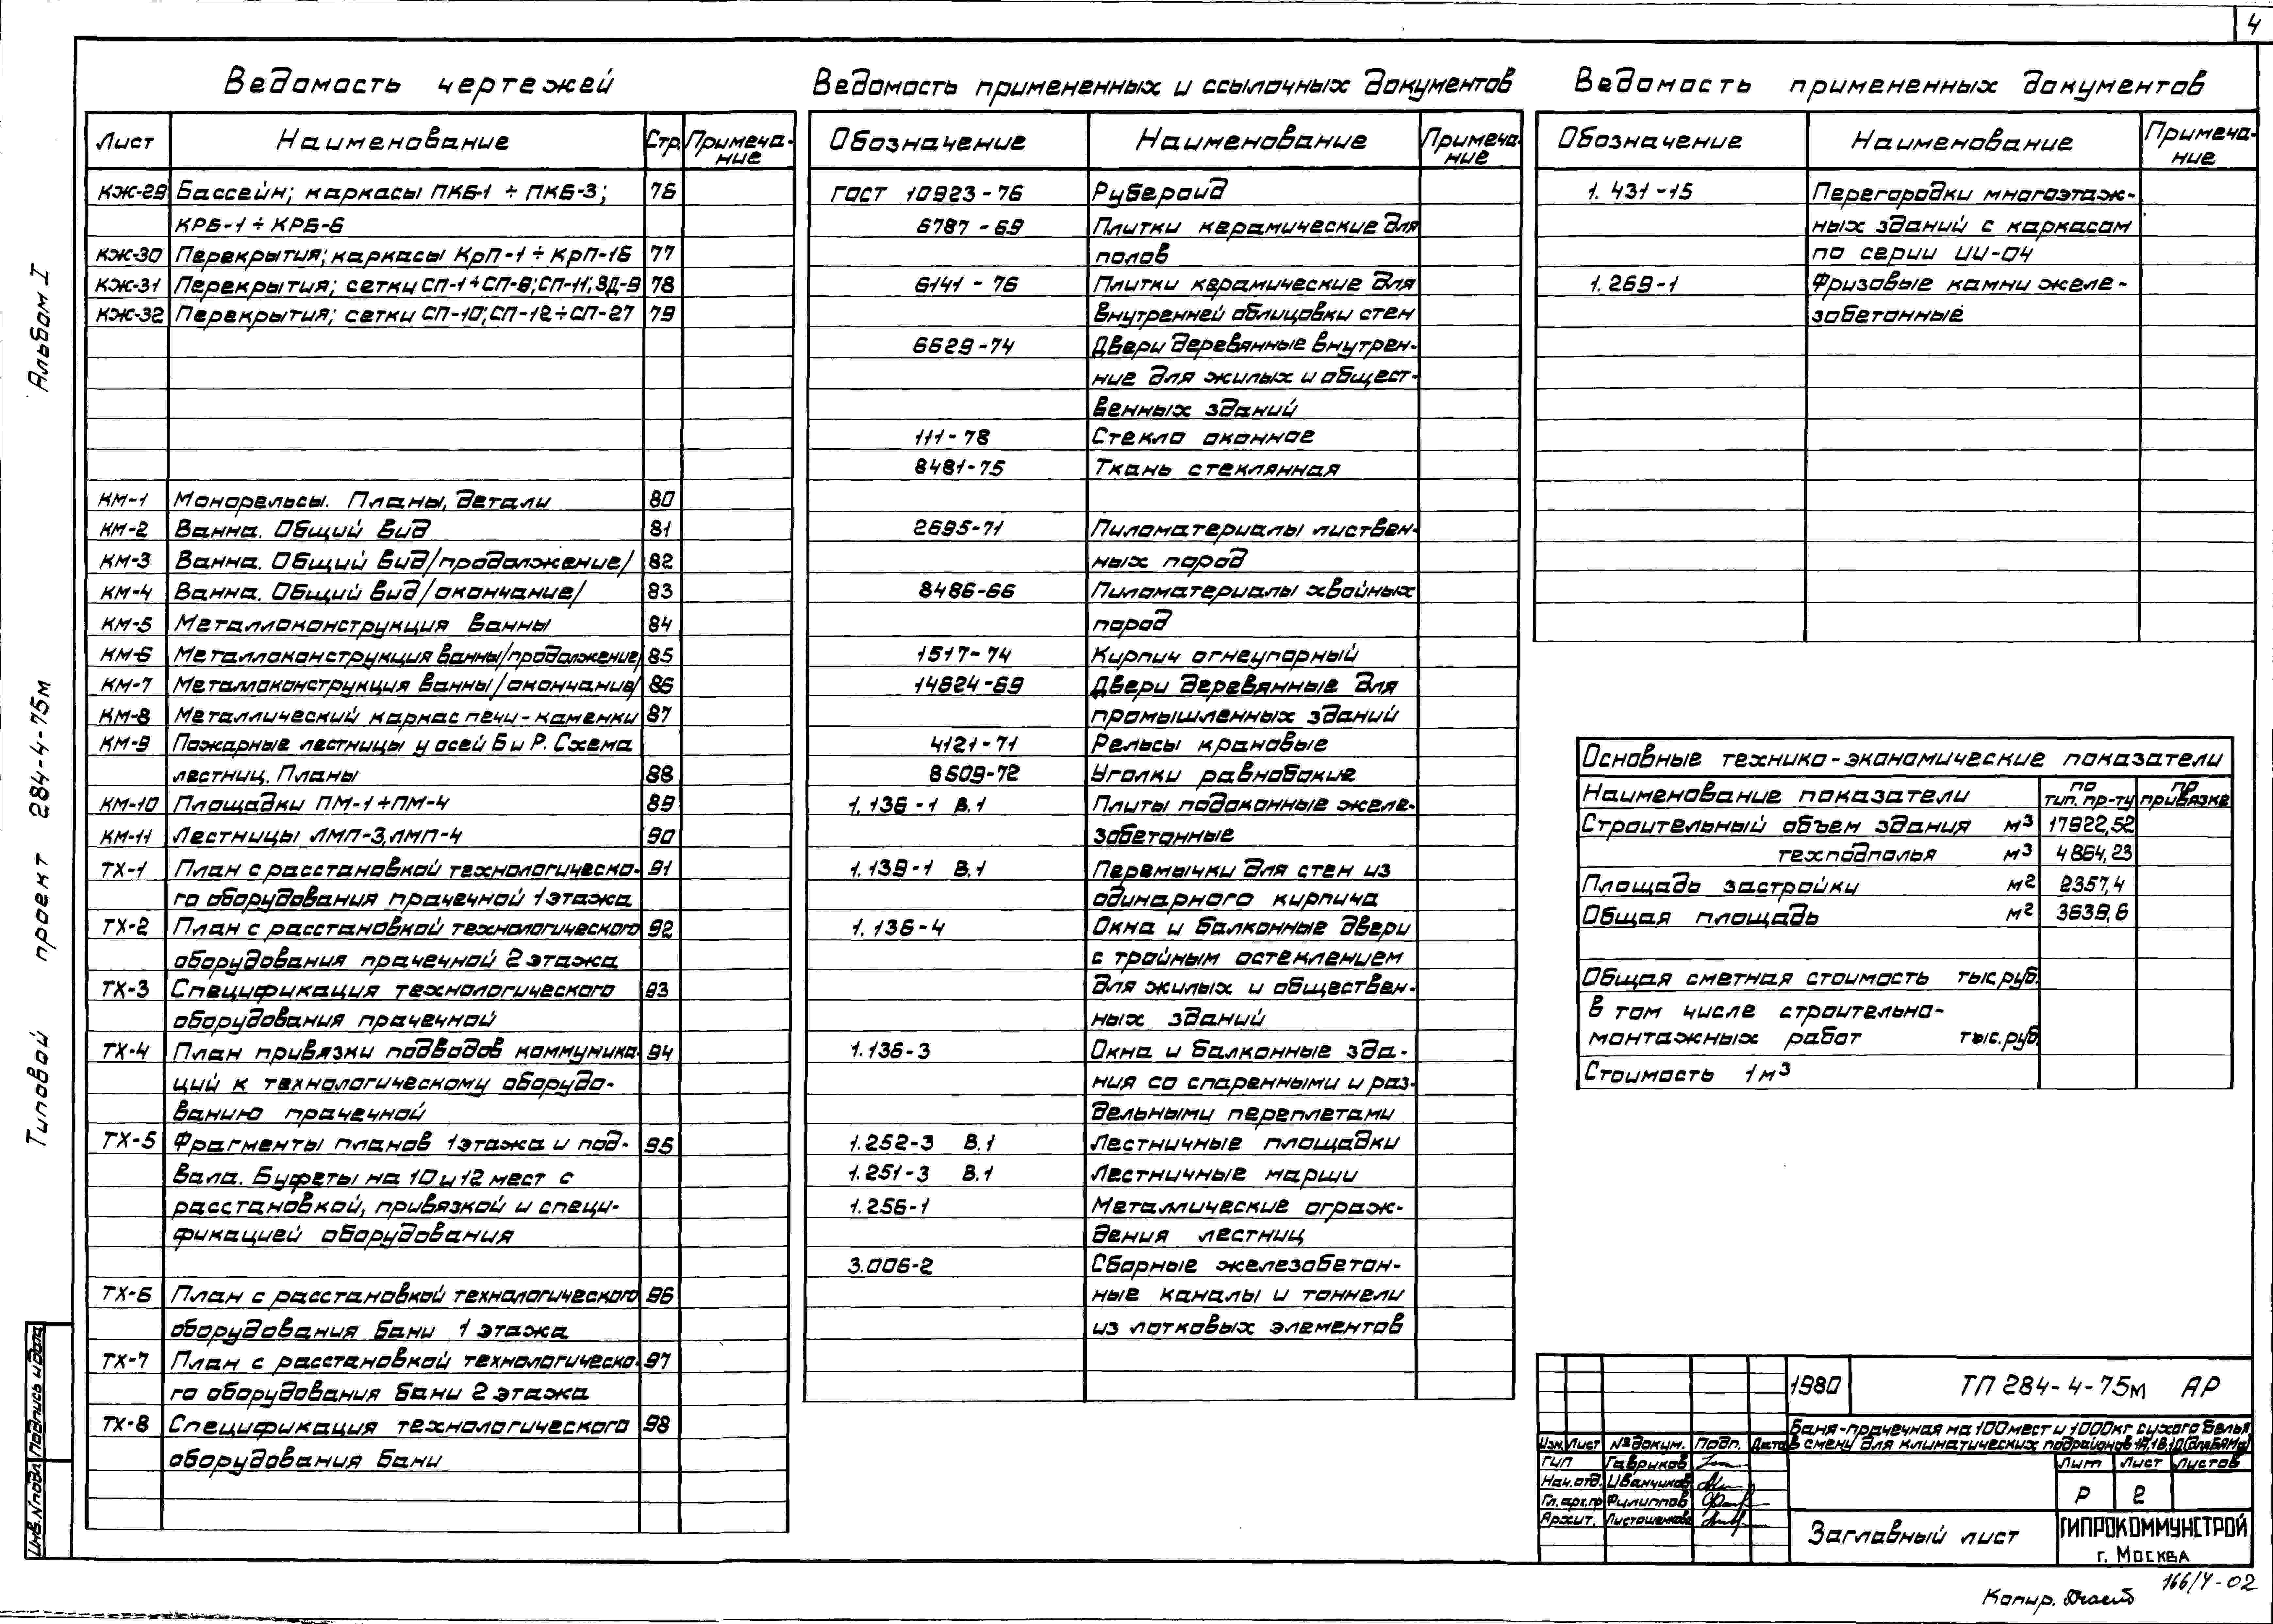 4
Ведомость чертежей
Лист Наименование Стр. Примеча-
ние
КЖ-29 Бассейн; каркасы ПКБ-1 ÷ ПКБ-3; 76
КРБ-1 ÷ КРБ-6
КЖ-30 Перекрытия; каркасы КрП-1 ÷ КрП-16 77
КЖ-31 Перекрытия; сетки СП-1÷СП-9; СП-11; ЗД-9 78
КЖ-32 Перекрытия; сетки СП-10; СП-12÷СП-27 79
КМ-1 Монорельсы. Планы, детали 80
КМ-2 Ванна. Общий вид 81
КМ-3 Ванна. Общий вид /продолжение/ 82
КМ-4 Ванна. Общий вид /окончание/ 83
КМ-5 Металлоконструкция ванны 84
КМ-6 Металлоконструкция ванны /продолжение/ 85
КМ-7 Металлоконструкция ванны /окончание/ 86
КМ-8 Металлический каркас печи-каменки 87
КМ-9 Пожарные лестницы у осей Б и Р. Схема
лестниц. Планы 88
КМ-10 Площадки ПМ-1÷ПМ-4 89
КМ-11 Лестницы ЛМП-3, ЛМП-4 90
ТХ-1 План с расстановкой технологическо- 91
го оборудования прачечной 1 этажа
ТХ-2 План с расстановкой технологического 92
оборудования прачечной 2 этажа
ТХ-3 Спецификация технологического 93
оборудования прачечной
ТХ-4 План привязки подводов коммуника- 94
ций к технологическому оборудо-
ванию прачечной
ТХ-5 Фрагменты планов 1 этажа и под- 95
вала. Буфеты на 10 и 12 мест с
расстановкой, привязкой и специ-
фикацией оборудования
ТХ-6 План с расстановкой технологического 96
оборудования бани 1 этажа
ТХ-7 План с расстановкой технологическо- 97
го оборудования бани 2 этажа
ТХ-8 Спецификация технологического 98
оборудования бани
Ведомость примененных и ссылочных документов
Обозначение Наименование Примеча-
ние
ГОСТ 10923-76 Рубероид
6787-69 Плитки керамические для
полов
6141-76 Плитки керамические для
внутренней облицовки стен
6629-74 Двери деревянные внутрен-
ние для жилых и общест-
венных зданий
111-78 Стекло оконное
8481-75 Ткань стеклянная
2695-71 Пиломатериалы листвен-
ных пород
8486-66 Пиломатериалы хвойных
пород
1517-74 Кирпич огнеупорный
14624-69 Двери деревянные для
промышленных зданий
4121-71 Рельсы крановые
8509-72 Уголки равнобокие
1.136-1 В.1 Плиты подоконные желе-
зобетонные
1.139-1 В.1 Перемычки для стен из
одинарного кирпича
1.136-4 Окна и балконные двери
с тройным остеклением
для жилых и обществен-
ных зданий
1.136-3 Окна и балконные зда-
ния со спаренными и раз-
дельными переплетами
1.252-3 В.1 Лестничные площадки
1.251-3 В.1 Лестничные марши
1.256-1 Металлические ограж-
дения лестниц
3.006-2 Сборные железобетон-
ные каналы и тоннели
из лотковых элементов
Ведомость примененных документов
Обозначение Наименование Примеча-
ние
1.431-15 Перегородки многоэтаж-
ных зданий с каркасом
по серии ИИ-04
1.269-1 Фризовые камни желе-
зобетонные
Основные технико-экономические показатели
Наименование показатели по тип. пр-ту по привязке
Строительный объем здания м3 17922,52
техподполья м3 4864,23
Площадь застройки м2 2357,4
Общая площадь м2 3639,6
Общая сметная стоимость тыс.руб.
в том числе строительно-
монтажных работ тыс.руб.
Стоимость 1м3
1980 ТП 284-4-75м АР
Баня-прачечная на 100 мест и 1000кг сухого белья
в смену для климатических подрайонов 1А, 1В, 1Д (для БАМа)
Изм. Лист № докум. Подп. Дата
ГИП Гавриков
Нач.отд. Иванчиков
Гл.арх.пр Филиппов
Архит. Листошенкова
Лит Лист Листов
Р 2
Заглавный лист
ГИПРОКОММУНСТРОЙ
г. Москва
Копир.
166/4-02
Альбом I
Типовой проект 284-4-75м
Инв.№подл Подпись и дата